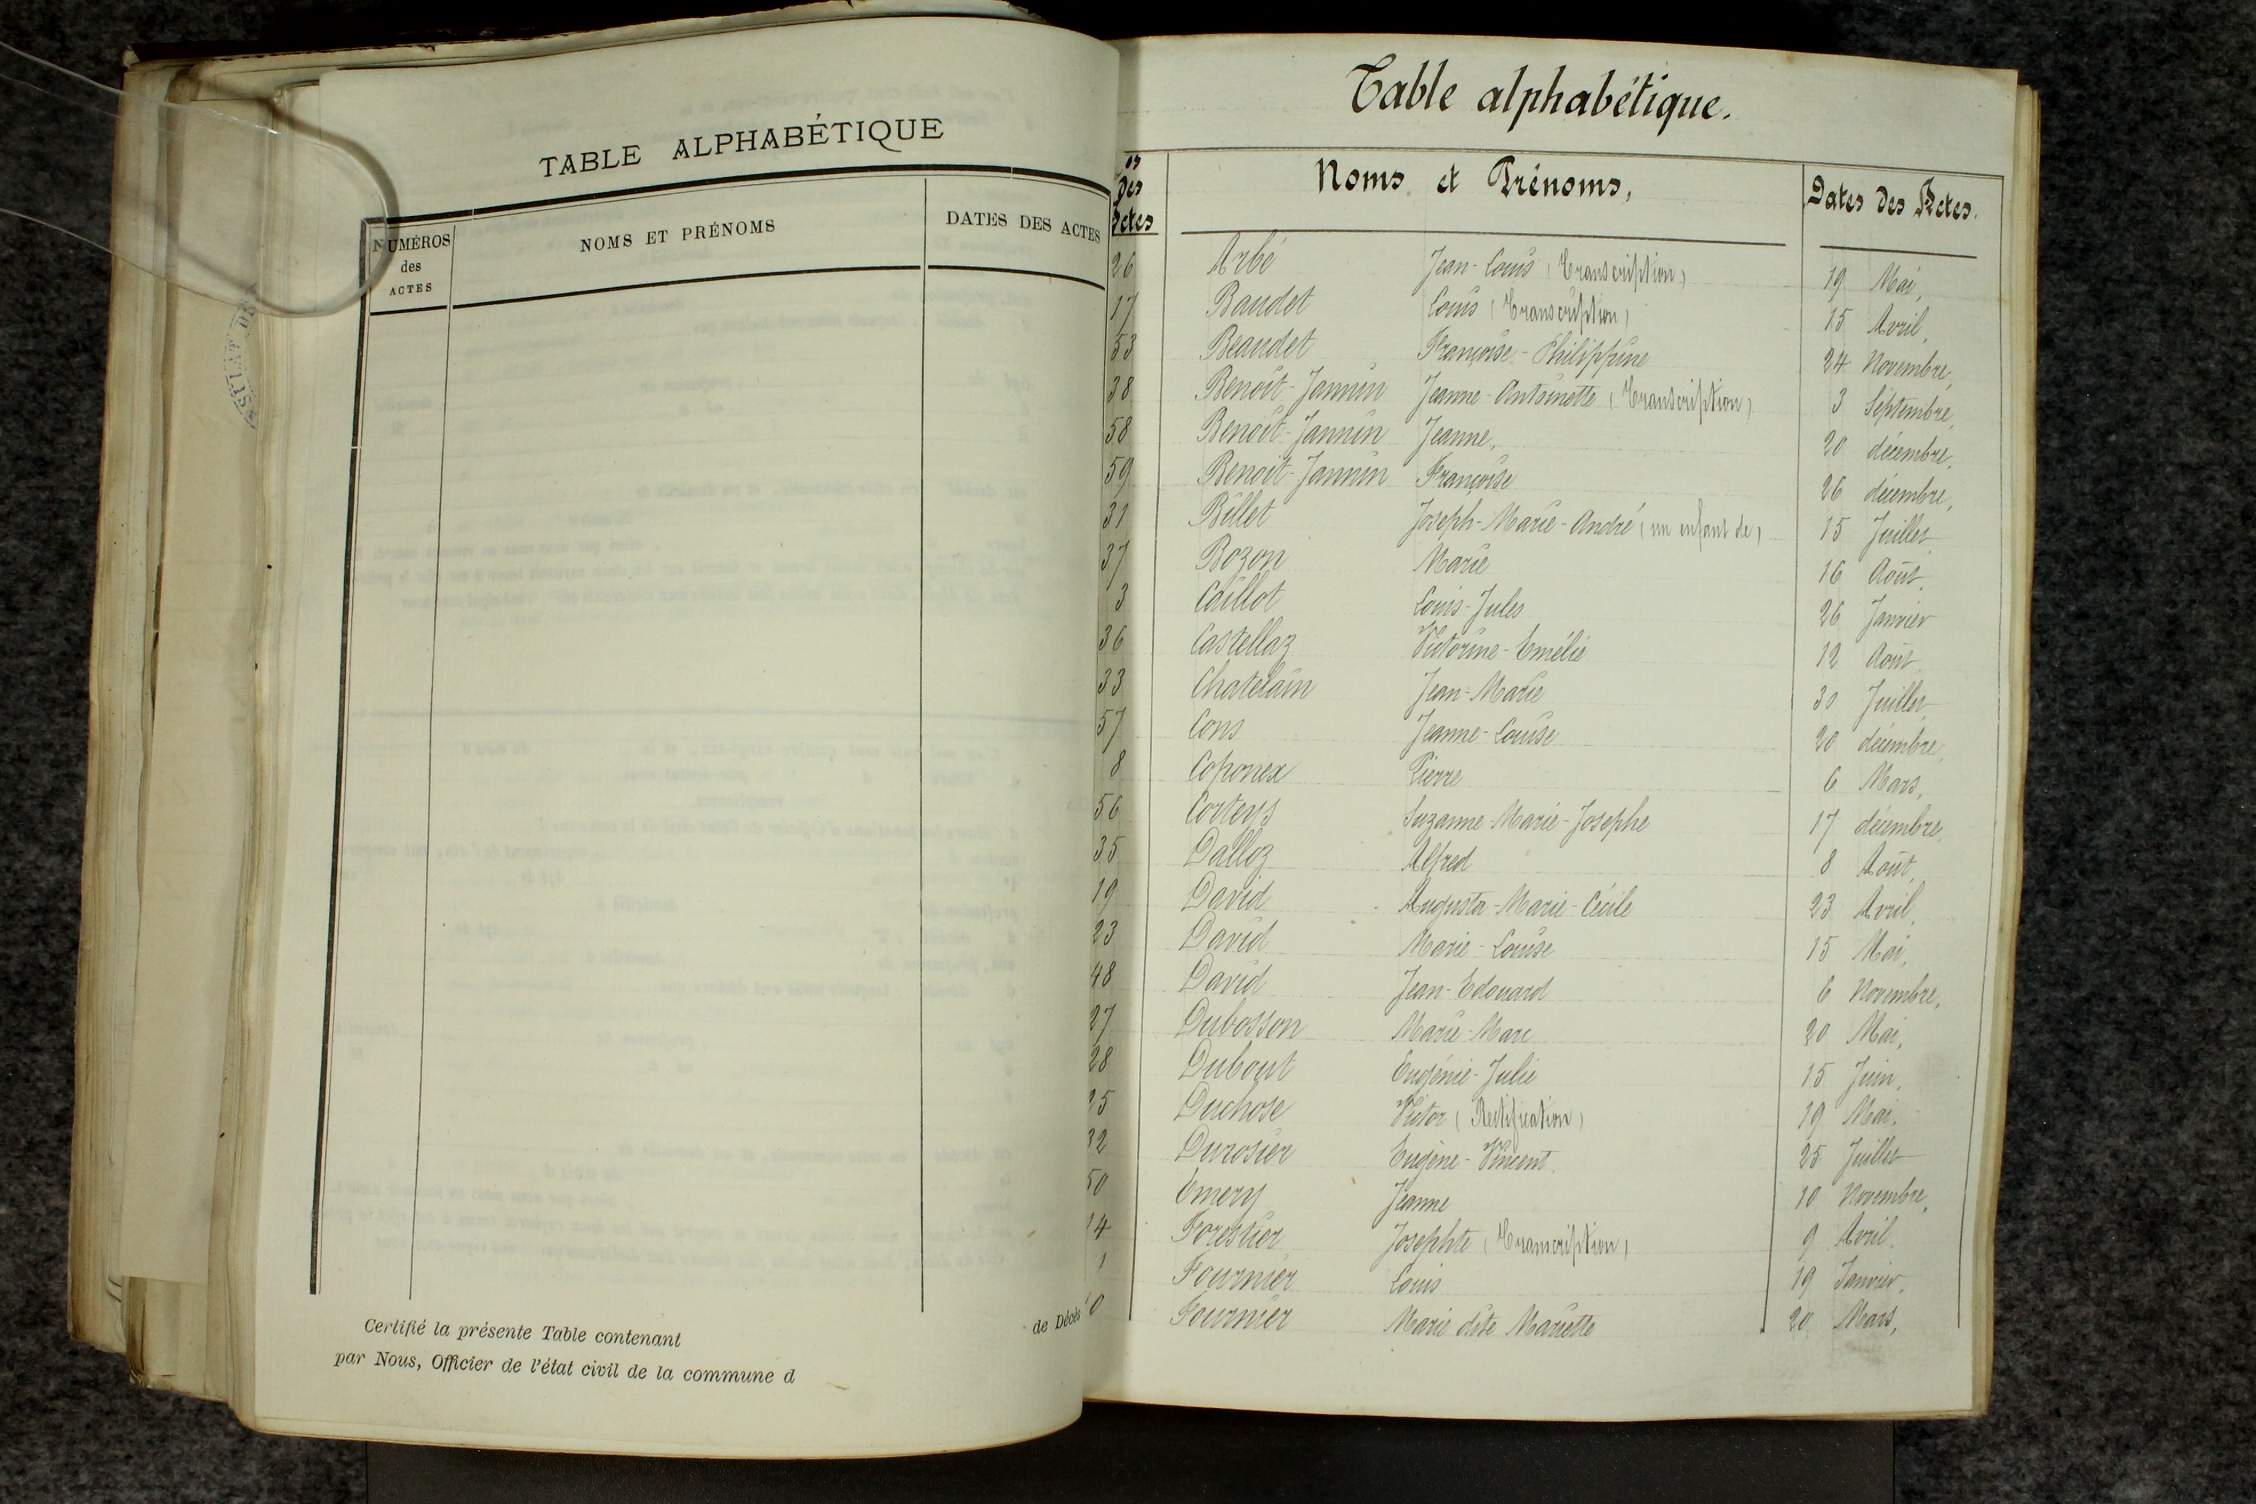 TABLE ALPHABÉTIQUE
NUMÉROS des ACTES NOMS ET PRÉNOMS DATES DES ACTES
Certifié la présente Table contenant de Décès
par Nous, Officier de l'état civil de la commune d
Table alphabétique.
os des Actes Noms et Prénoms, Dates des Actes.
26 Arbé Jean-Louis (Transcription) 19 Mai,
17 Baudet Louis (Transcription) 15 Avril,
53 Beaudet Françoise-Philippine 24 Novembre,
38 Benoît-Jannin Jeanne-Antoinette (Transcription) 3 Septembre,
58 Benoît-Jannin Jeanne, 20 décembre,
59 Benoit-Jannin Françoise 26 décembre,
31 Billet Joseph-Marie-André (un enfant de) 15 Juillet
37 Bozon Marie 16 Août,
3 Caillot Louis-Jules 26 Janvier
36 Castellaz Victorine-Emélie 12 Août
33 Chatelain Jean-Marie 30 Juillet
57 Cons Jeanne-Louise 20 décembre,
8 Coponex Pierre 6 Mars,
56 Corteys Suzanne-Marie-Josephe 17 décembre,
35 Dalloz Alfred 8 Août,
19 David Augusta-Marie-Cécile 23 Avril,
23 David Marie-Louise 15 Mai,
48 David Jean-Edouard 6 Novembre,
27 Dubosson Marie-Marc 20 Mai,
28 Dubout Eugénie-Julie 15 Juin,
25 Duchose Victor (Rectification) 19 Mai,
32 Durosier Eugène-Vincent. 25 Juillet
50 Emery Jeanne 10 Novembre,
14 Forestier Josephte (Transcription) 9 Avril.
1 Fournier Louis 19 Janvier,
10 Fournier Marie dite Mariette 20 Mars,